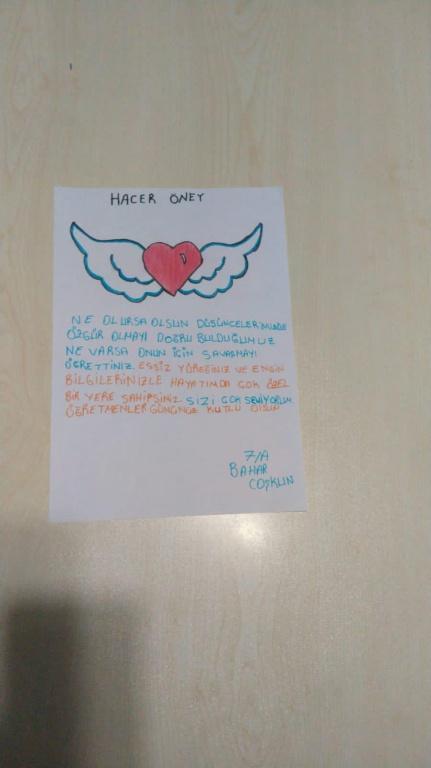 HACER ÖNEY
NE OLURSA OLSUN DÜŞÜNCELERİMİZDE
ÖZGÜR OLMAYI DOĞRU BULDUĞUMUZ
NE VARSA ONUN İÇİN SAVAŞMAYI
ÖĞRETTİNİZ. EŞSİZ YÜREĞİNİZ VE ENGİN
BİLGİLERİNİZLE HAYATIMDA ÇOK ÖZEL
BİR YERE SAHİPSİNİZ SİZİ ÇOK SEVİYORUM.
ÖĞRETMENLER GÜNÜNÜZ KUTLU OLSUN
7/A
BAHAR
COŞKUN